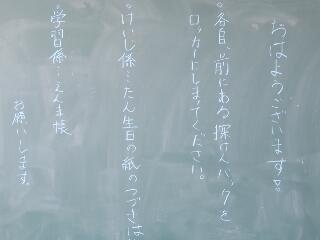 おはようございます。
・各自、前にある探けんバックを
ロッカーにしまってください。
・けいじ係…たん生日の紙のつづきは
・学習係…えんま様
お願いします。